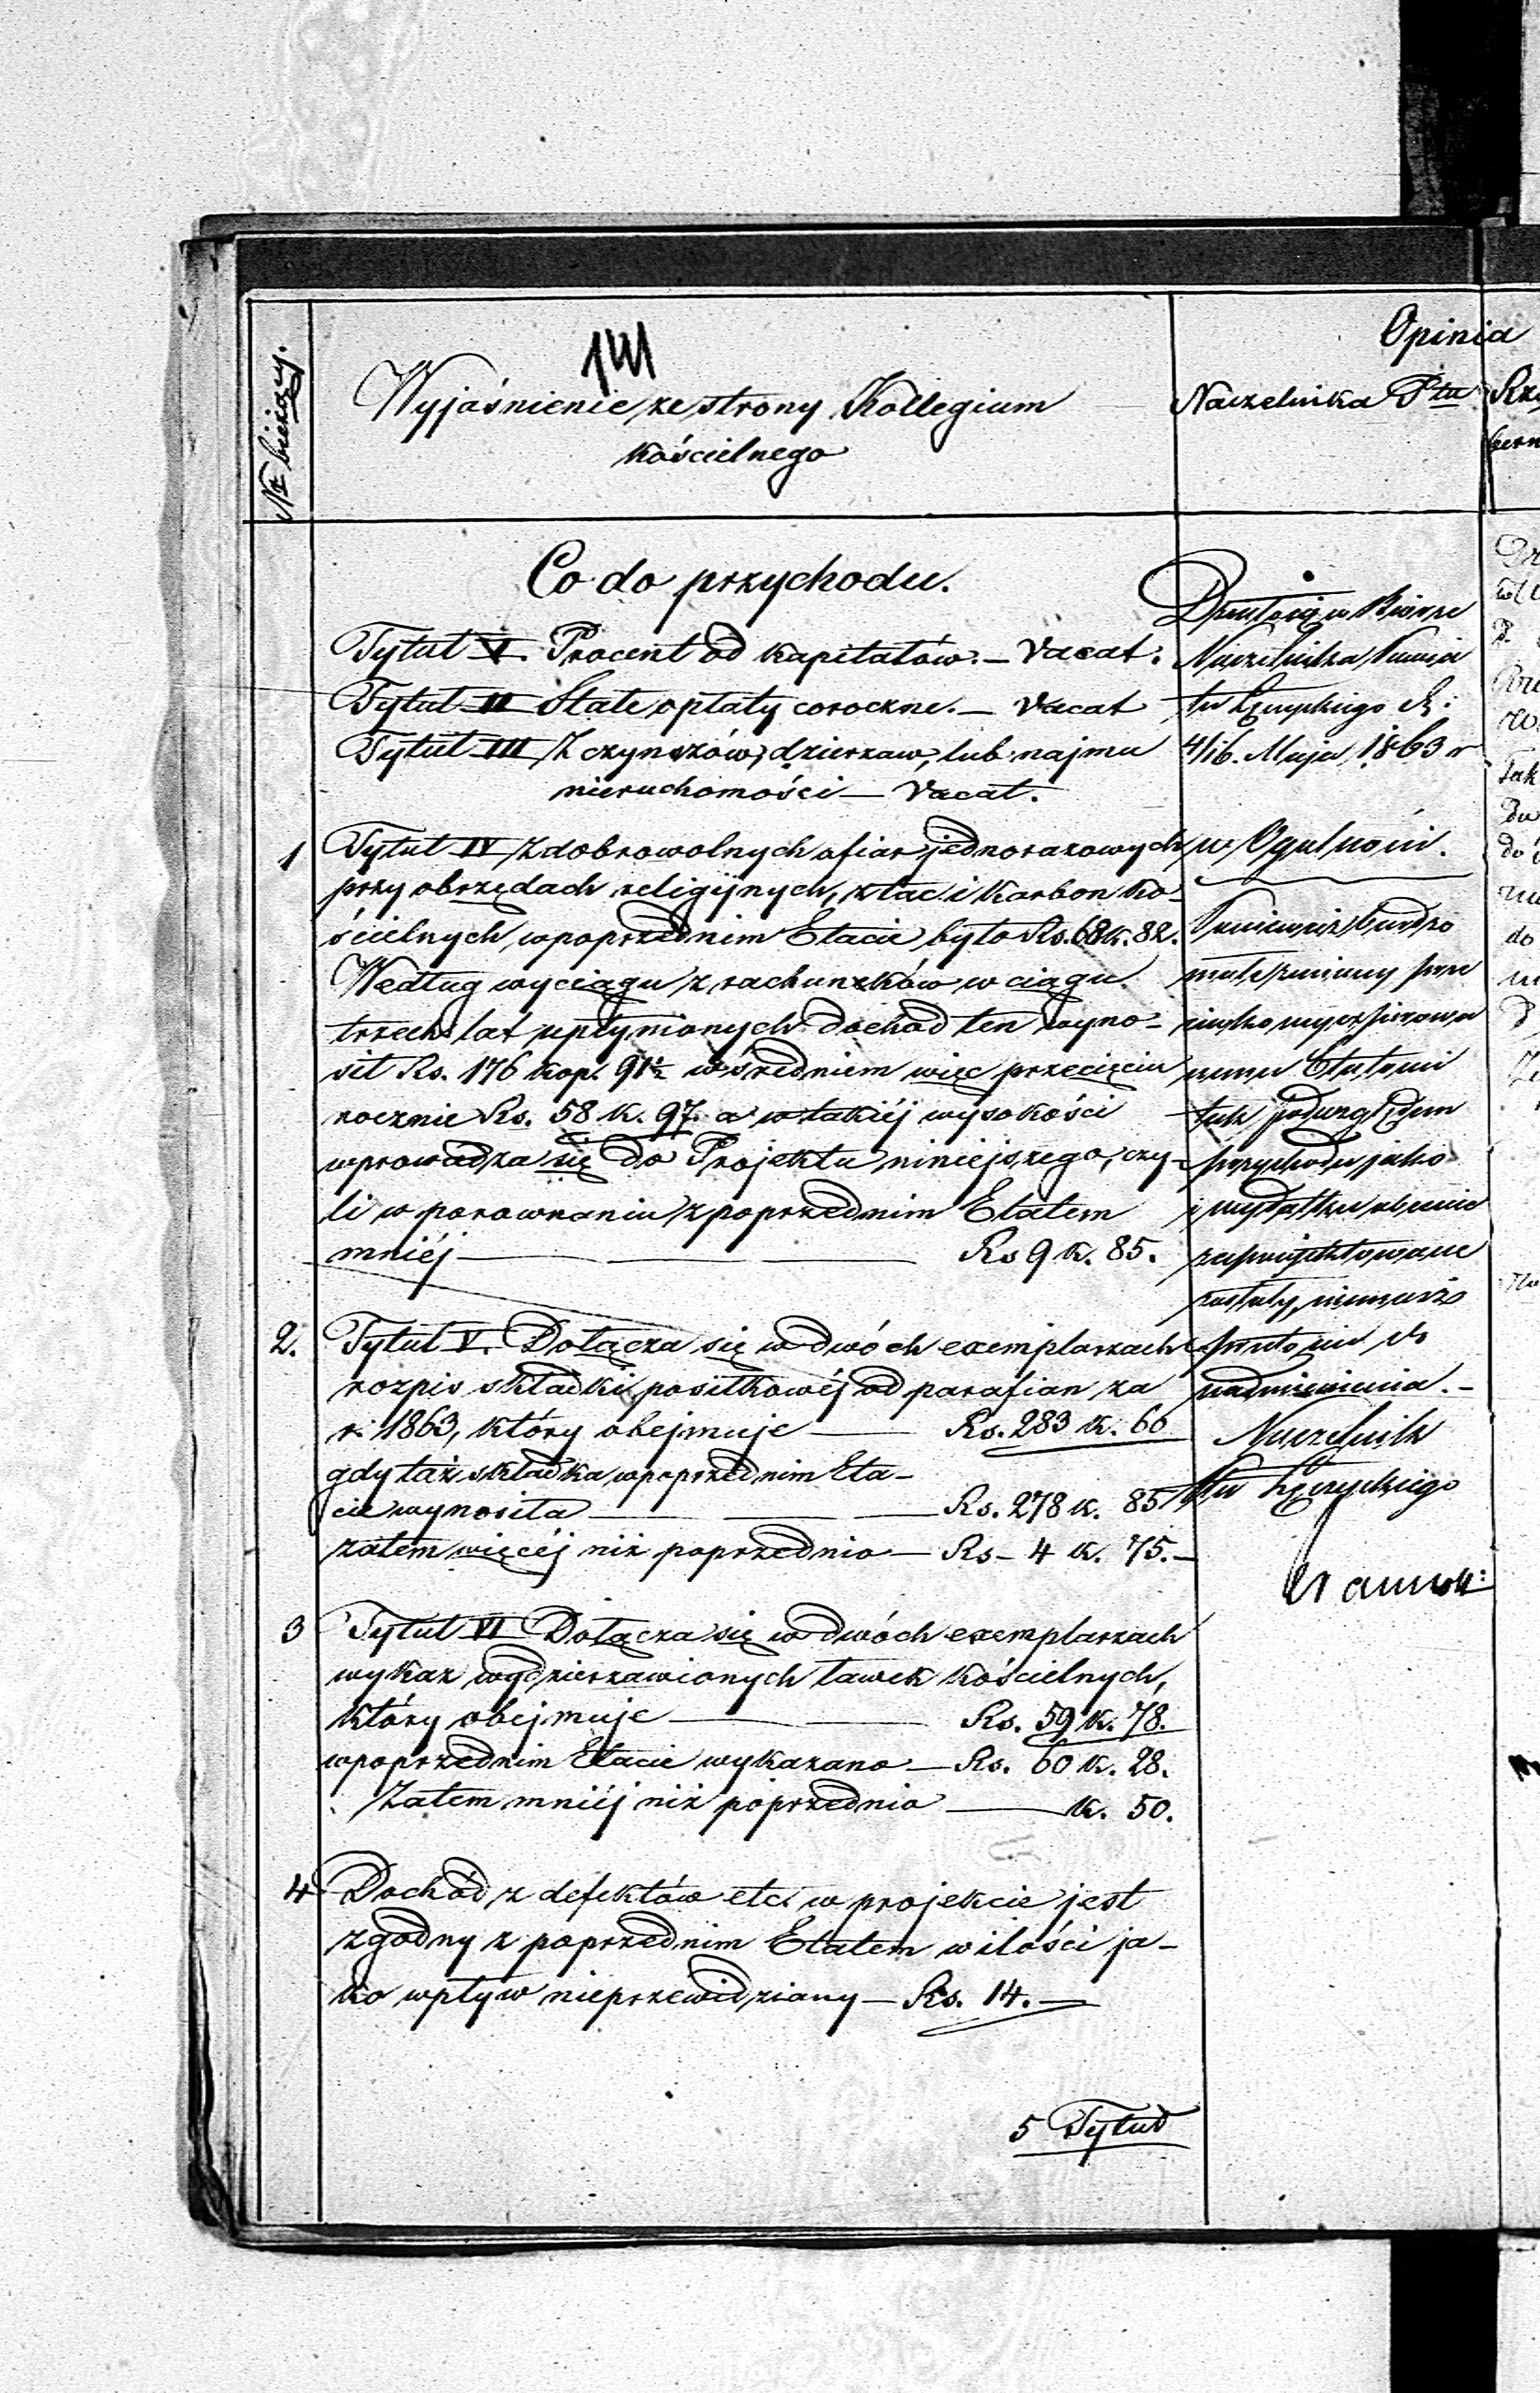 141
Nr bieżący.
Wyjaśnienie ze strony Kollegium
kościelnego
Opinia
Naczelnika Ptu
Co do przychodu.
Tytuł I. Procent od kapitałów. — Vacat.
Tytuł II Stałe opłaty coroczne. — Vacat
Tytuł III Z czynszów, dzierzaw, lub najmu
nieruchomości — Vacat.
1 Tytuł IV Z dobrowolnych ofiar jednorazowych
przy obrzędach religijnych, z tac i karbon ko-
ścielnych, w poprzednim Etacie było Rs. 68 k. 82.
Według wyciągu z rachunków w ciągu
trzech lat upłynionych dochód ten wyno-
sił Rs. 176 kop. 91½ w średniem więc przecięciu
rocznie Rs. 58 k. 97. a w takiéj wysokości
wprowadza się do Projektu niniejszego, czy-
li w porownaniu z poprzednim Etatem
mniéj — Rs 9 k. 85.
2. Tytuł V. Dołącza się w dwóch exemplarzach
rozpis składki posiłkowéj od parafian za
r. 1863, który obejmuje — Rs. 283 k. 60
gdy taż składka w poprzednim Eta-
cie wynosiła — Rs. 278 k. 85
zatem więcéj niż poprzednio — Rs - 4 k. 75. —
3 Tytuł VI Dołącza się w dwóch exemplarzach
wykaz wydzierzawionych ławek kościelnych,
który obejmuje — Rs. 59 k. 78.
w poprzednim Etacie wykazano — Rs. 60 k. 28.
Zatem mniéj niż poprzednio — k. 50.
4 Dochód z defektów etc. w projekcie jest
zgodny z poprzednim Etatem w ilości ja-
ko wpływ nieprzewidziany — Rs. 14. —
5 Tytuł
w Biórze
Naczelnika Powia
tu Łęczyckiego d:
4/16. Maja 1863 r
w Ogulności.
Ponieważ bardzo
małe zmiany
Etatami
tak pod względem
przychodu jako
i wydatku obecnie
zaprojektowane
zostały, niema nic
do
nadmienienia. —
Naczelnik
Ptu Łęczyckiego